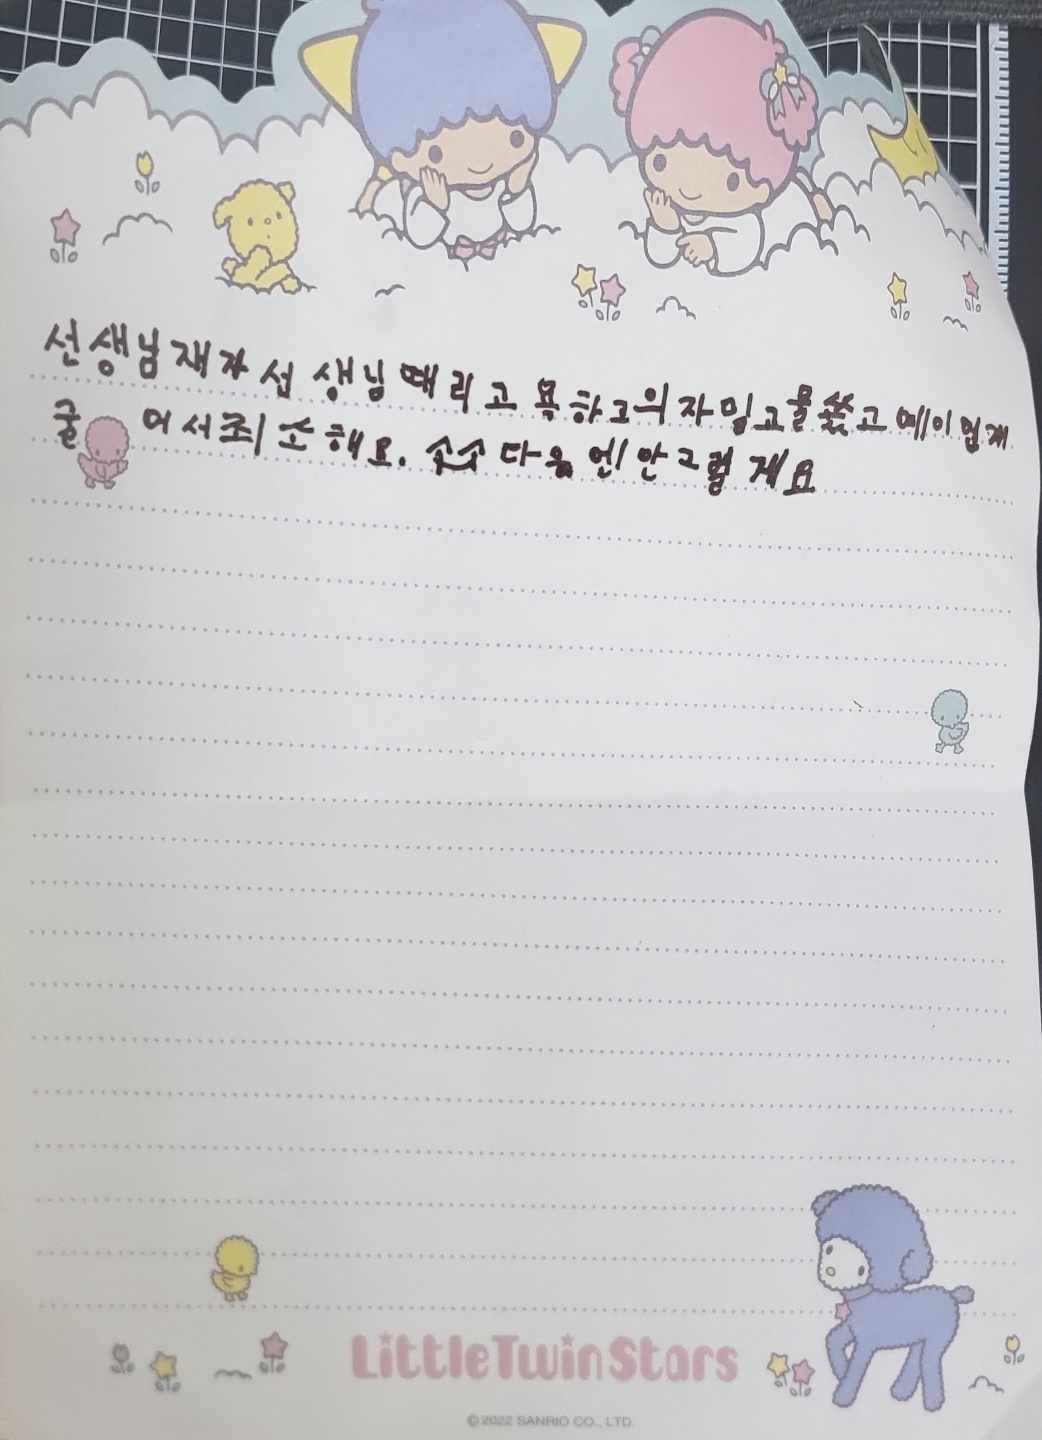 선생님재가 선 생님 때리고 욕하고의자밀고물쏬고예이멉게
굴 어서죄 손 해요. 손손 다음 엔 안그럴 게요
LittleTwinStars
© 2022 SANRIO CO., LTD.